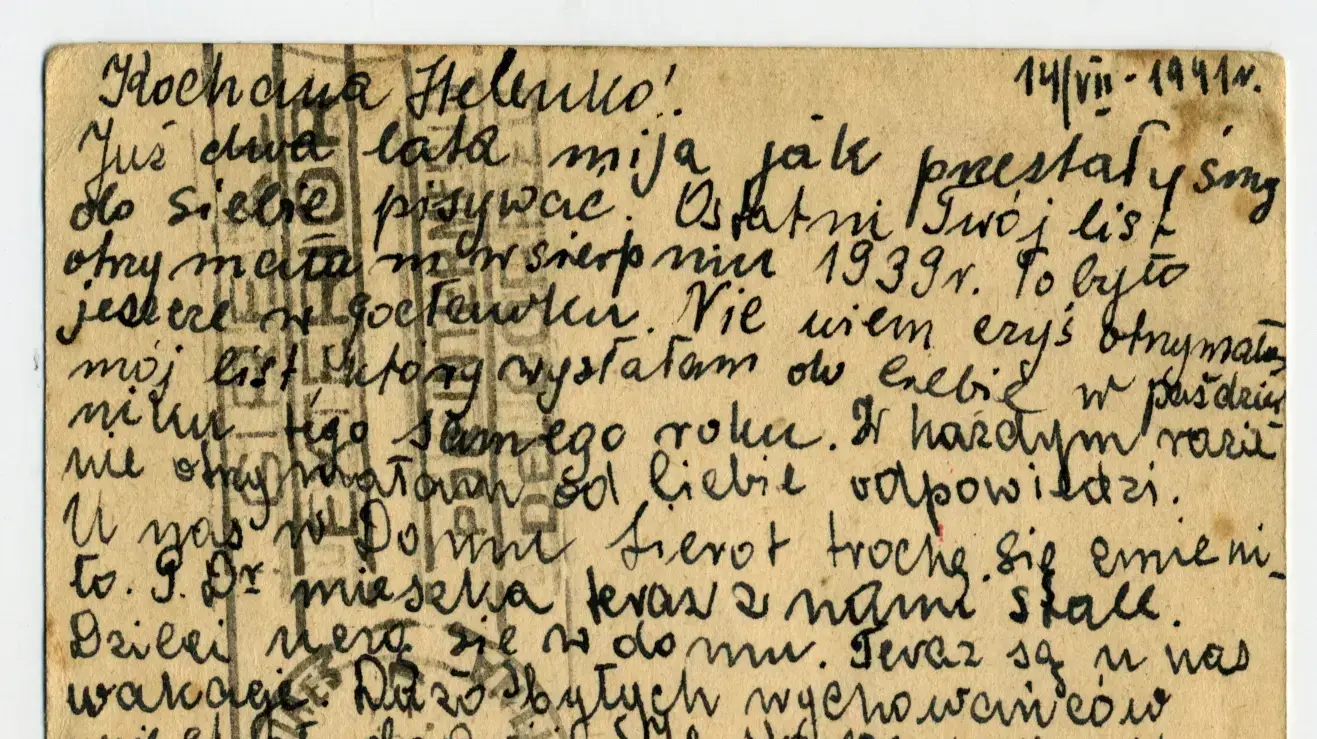 14/VII - 1941 r.
Kochana Helenko!
Już dwa lata mija jak przestałyśmy
do siebie pisywać. Ostatni Twój list
otrzymałam w sierpniu 1939 r. To było
jeszcze w Gocławku. Nie wiem czyś otrzymała
mój list który wysłałam do Ciebie w paździer
niku tego samego roku. W każdym razie
nie otrzymałam od Ciebie odpowiedzi.
U nas w Domu Sierot trochę się zmieni-
ło. P. Dr mieszka teraz z nami stale.
Dzieci uczą się w domu. Teraz są u nas
wakacje. Dużo byłych wychowańców